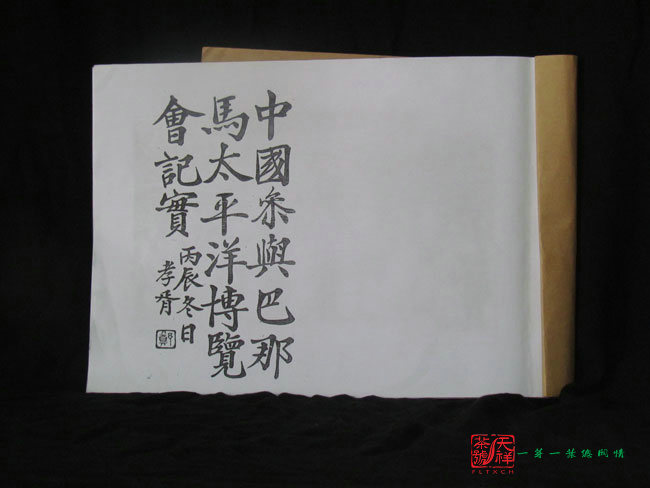 中國參與巴那
馬太平洋博覽
會記實
丙辰冬日
孝胥
鄭
天祥
茶號
FLTXCH
一芽一葉總關情